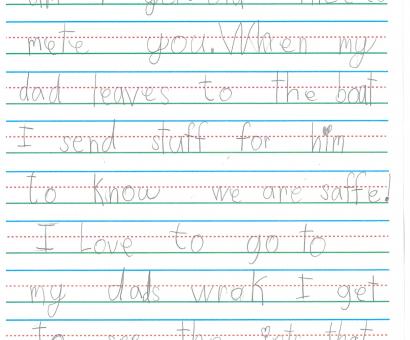 mete you. When my
dad leaves to the boat
I send stuff for him
to know we are saffe!
I Love to go to
my dads wrok I get
to see the that